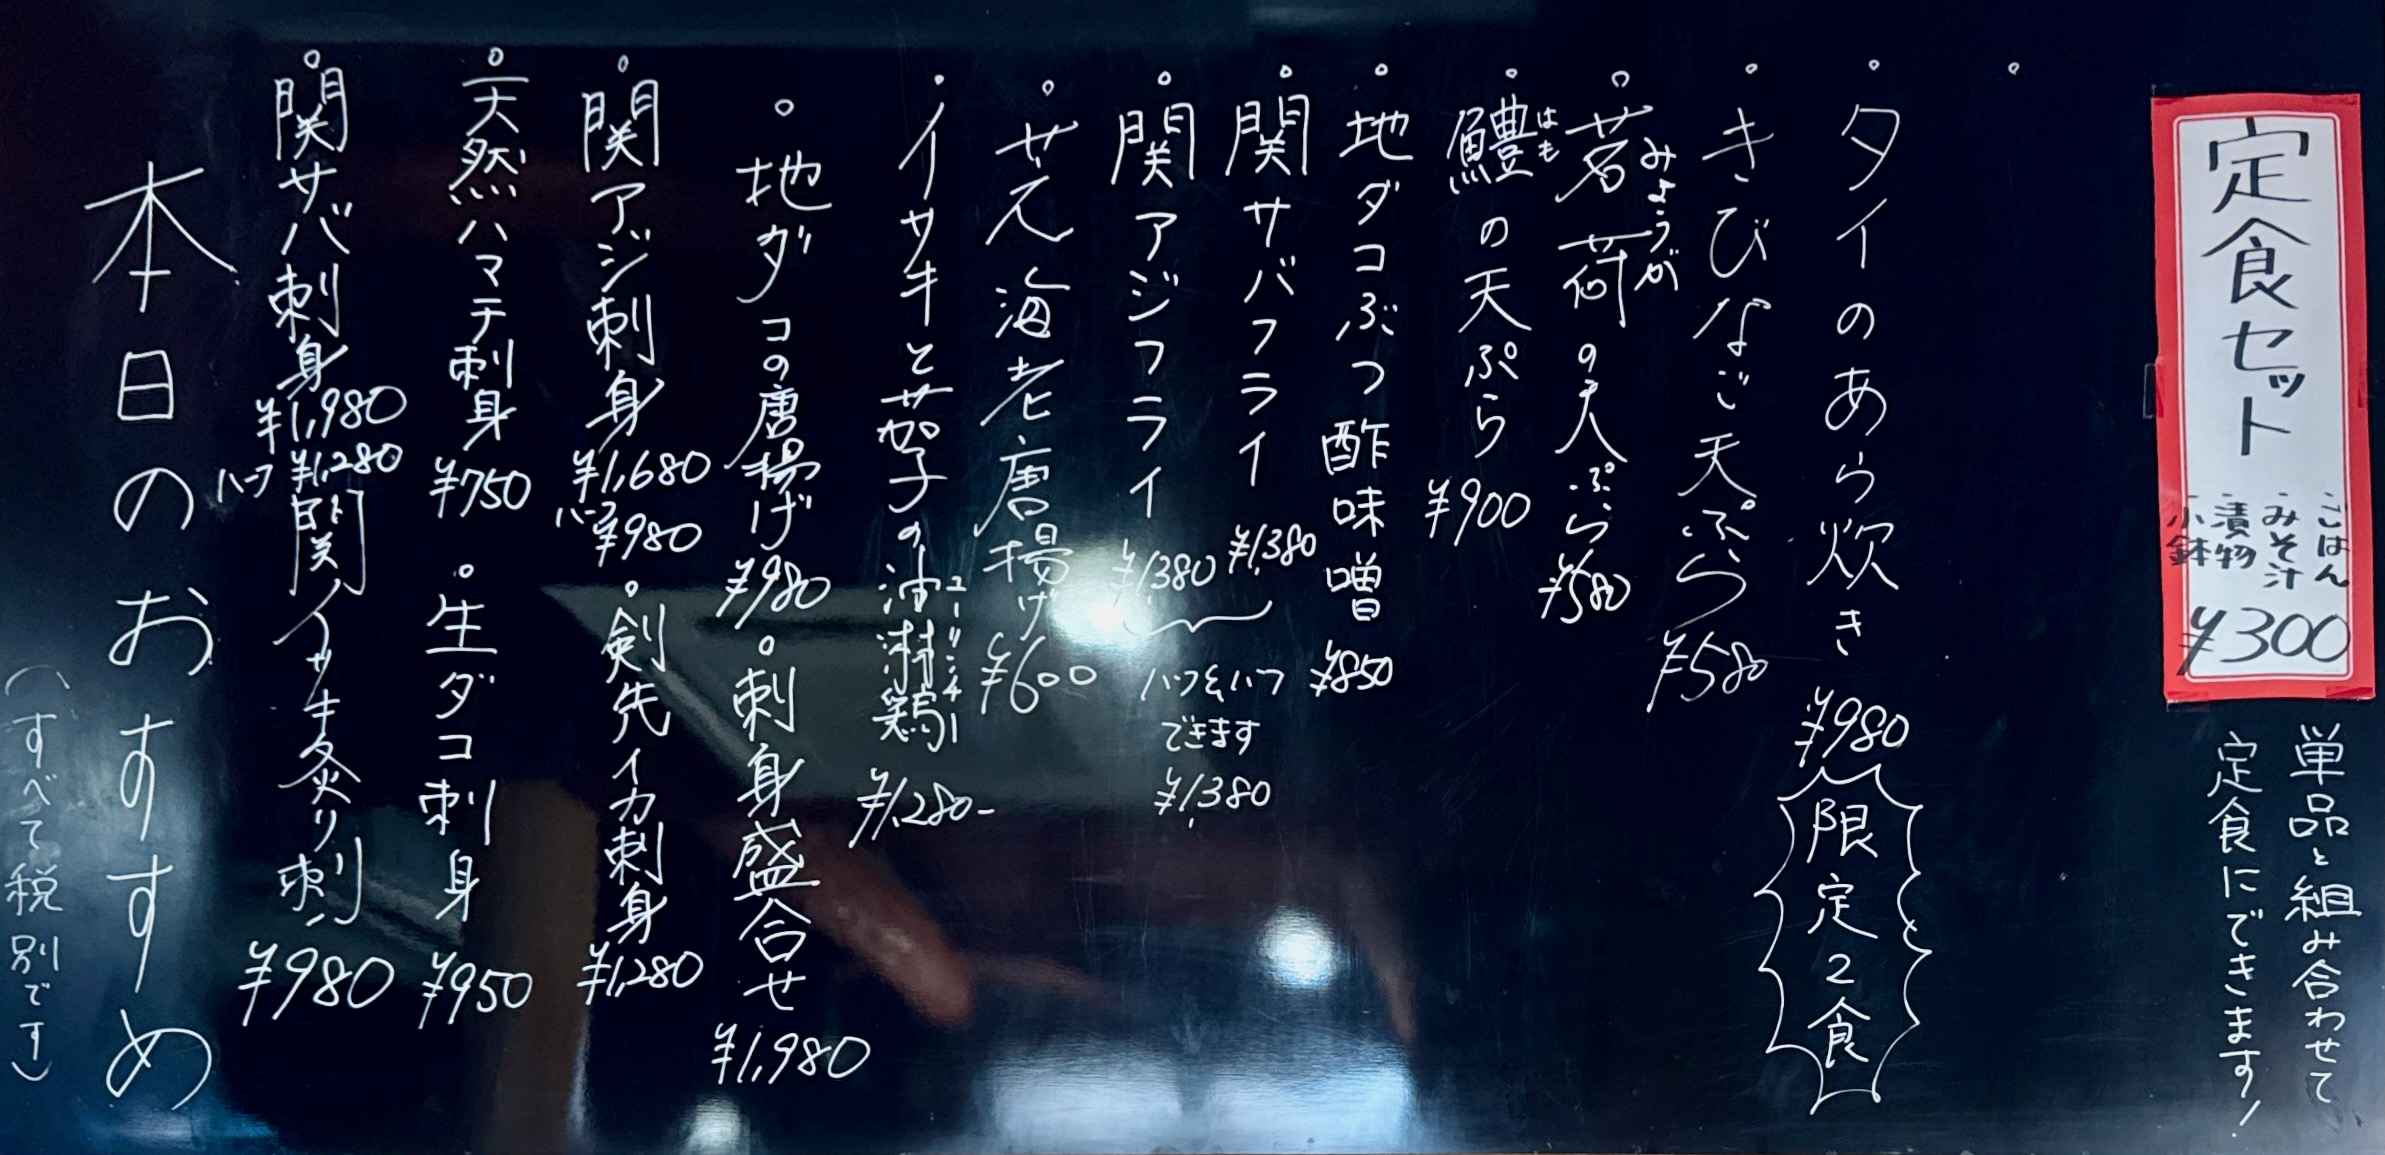 定食セット
ごはん
みそ汁
漬物
小鉢
¥300
単品と組み合わせて
定食にできます!
タイのあら炊き ¥980
限定2食
きびなご天ぷら ¥580
茗荷の天ぷら ¥580
みょうが
鱧の天ぷら ¥900
はも
地ダコぶつ酢味噌 ¥850
関サバフライ ¥1,380
関アジフライ ¥1,380
ハーフ&ハーフ
できます
¥1,380
海老唐揚げ ¥600
イサキと茄子の油淋鶏 ¥1,280-
ユーリンチー
地ダコの唐揚げ ¥980
刺身盛合せ ¥1,980
関アジ刺身 ¥1,680
ハーフ ¥980
剣先イカ刺身 ¥1,280
天然ハマチ刺身 ¥750
生ダコ刺身 ¥950
関サバ刺身 ¥1,980
ハーフ ¥1,280
関イサキ炙り刺 ¥980
本日のおすすめ
(すべて税別です)